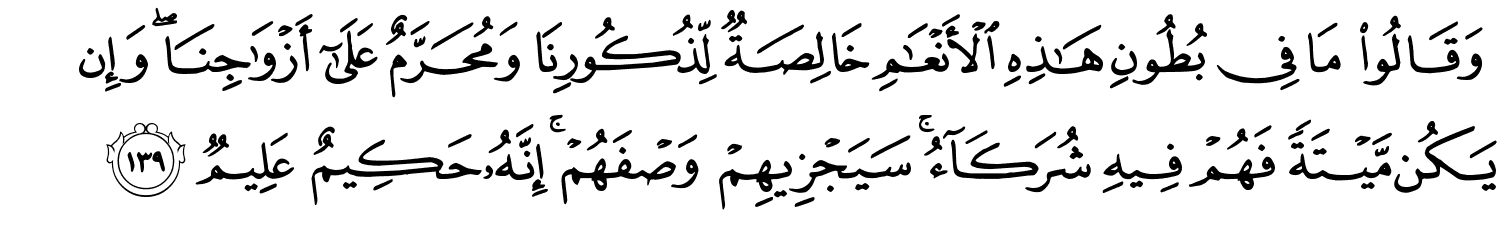 وَقَالُوا۟ مَا فِى بُطُونِ هَـٰذِهِ ٱلْأَنْعَـٰمِ خَالِصَةٌ لِّذُكُورِنَا وَمُحَرَّمٌ عَلَىٰٓ أَزْوَٰجِنَا ۖ وَإِن
يَكُن مَّيْتَةً فَهُمْ فِيهِ شُرَكَآءُ ۚ سَيَجْزِيهِمْ وَصْفَهُمْ ۚ إِنَّهُۥ حَكِيمٌ عَلِيمٌ ١٣٩